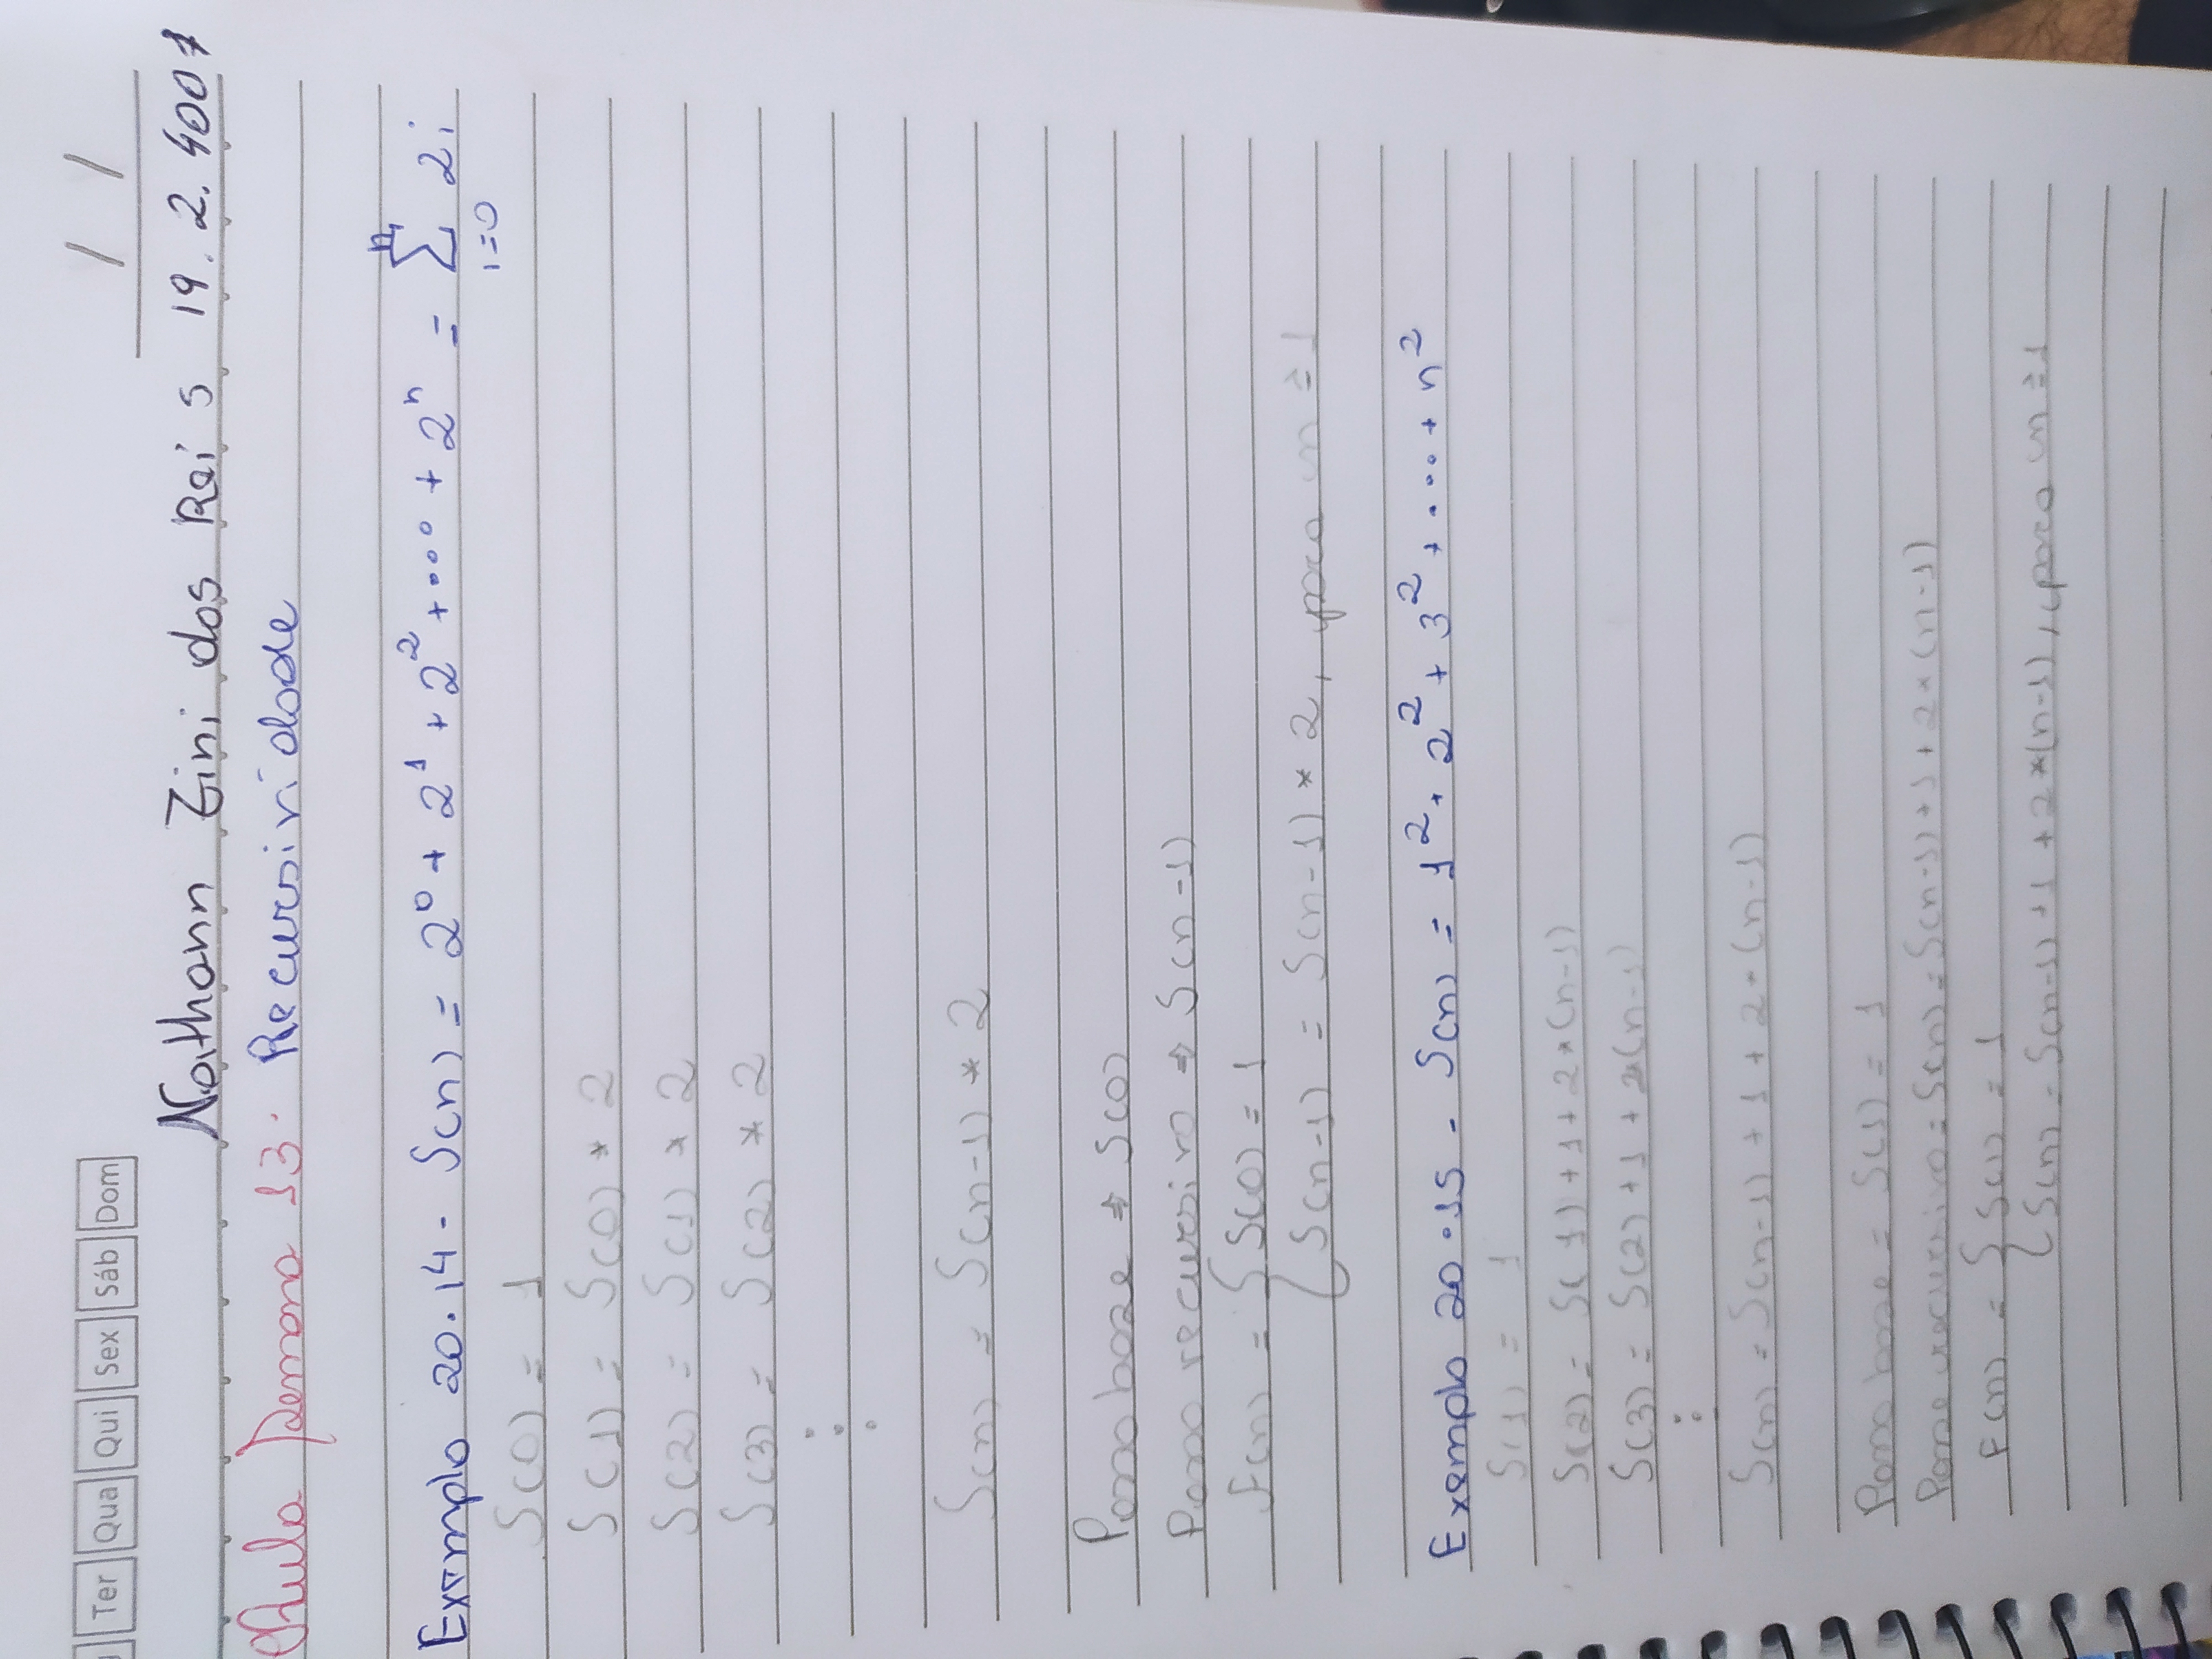 Ter Qua Qui Sex Sáb Dom / /
Nathann Zini dos Reis 19.2.4007
Aula Semana 13. Recursividade
Exemplo 20.14 - S(n) = 2⁰ + 2¹ + 2² + ... + 2ⁿ = ∑ⁿᵢ₌₀ 2i
S(0) = 1
S(1) = S(0) * 2
S(2) = S(1) * 2
S(3) = S(2) * 2
⋮
S(n) = S(n-1) * 2
Passo base ⇒ S(0)
Passo recursivo ⇒ S(n-1)
F(n) = { S(0) = 1
S(n-1) = S(n-1) * 2, para n ≥ 1
Exemplo 20.15 - S(n) = 1² + 2² + 3² + ... + n²
S(1) = 1
S(2) = S(1) + 1 + 2*(n-1)
S(3) = S(2) + 1 + 2*(n-1)
⋮
S(n) = S(n-1) + 1 + 2*(n-1)
Passo base = S(1) = 1
Passo recursivo = S(n) = S(n-1) + 1 + 2*(n-1)
F(n) = { S(1) = 1
S(n) = S(n-1) + 1 + 2*(n-1), para n ≥ 1